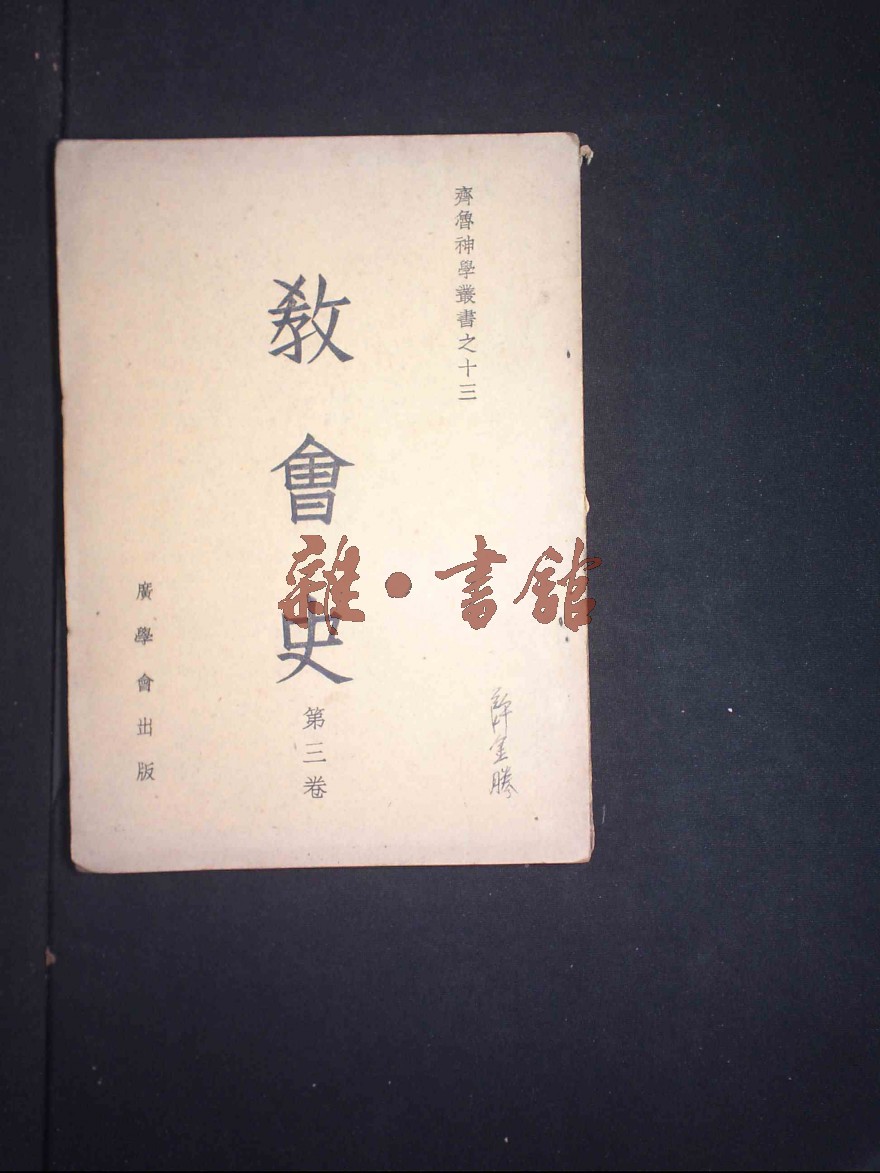 齊魯神學叢書之十三
教會史
第三卷
廣學會出版
雜·書館